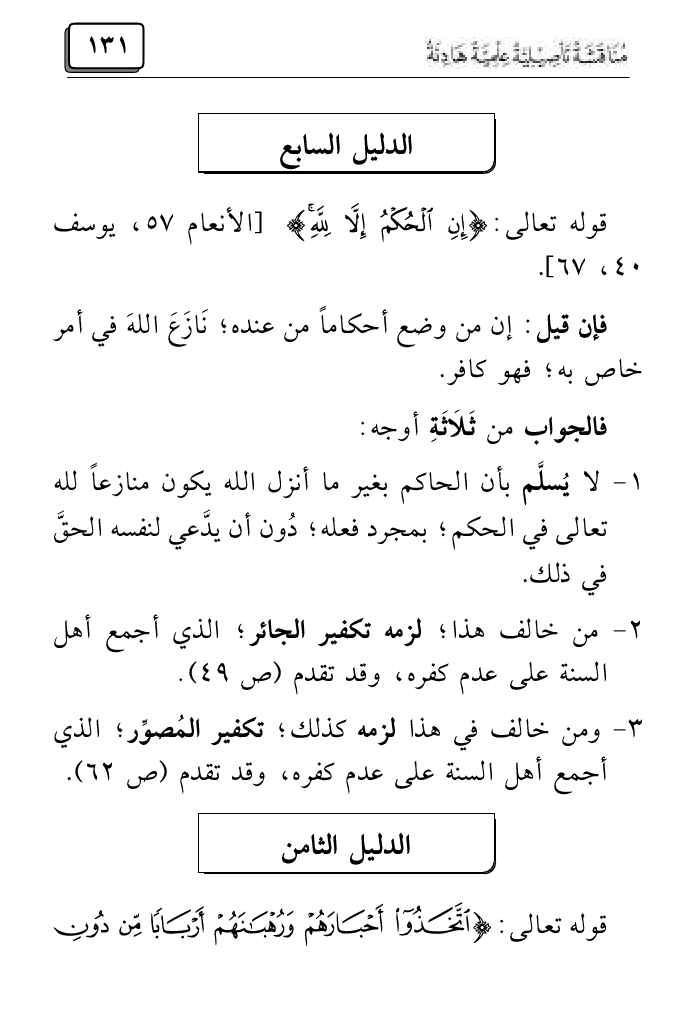 مُنَاقَشَةٌ تَأْصِيلِيَّةٌ عِلْمِيَّةٌ هَادِئَةٌ
١٣١
الدليل السابع
قوله تعالى: ﴿إِنِ ٱلْحُكْمُ إِلَّا لِلَّهِۚ﴾ [الأنعام ٥٧، يوسف
٤٠، ٦٧].
فإن قيل: إن من وضع أحكاماً من عنده؛ نَازَعَ اللهَ في أمر
خاص به؛ فهو كافر.
فالجواب من ثَلَاثَةِ أوجه:
١- لا يُسلَّم بأن الحاكم بغير ما أنزل الله يكون منازعاً لله
تعالى في الحكم؛ بمجرد فعله؛ دُون أن يدَّعي لنفسه الحقَّ
في ذلك.
٢- من خالف هذا؛ لزمه تكفير الجائر؛ الذي أجمع أهل
السنة على عدم كفره، وقد تقدم (ص ٤٩).
٣- ومن خالف في هذا لزمه كذلك؛ تكفير المُصوِّر؛ الذي
أجمع أهل السنة على عدم كفره، وقد تقدم (ص ٦٢).
الدليل الثامن
قوله تعالى: ﴿ٱتَّخَذُوٓا۟ أَحْبَارَهُمْ وَرُهْبَـٰنَهُمْ أَرْبَابًا مِّن دُونِ